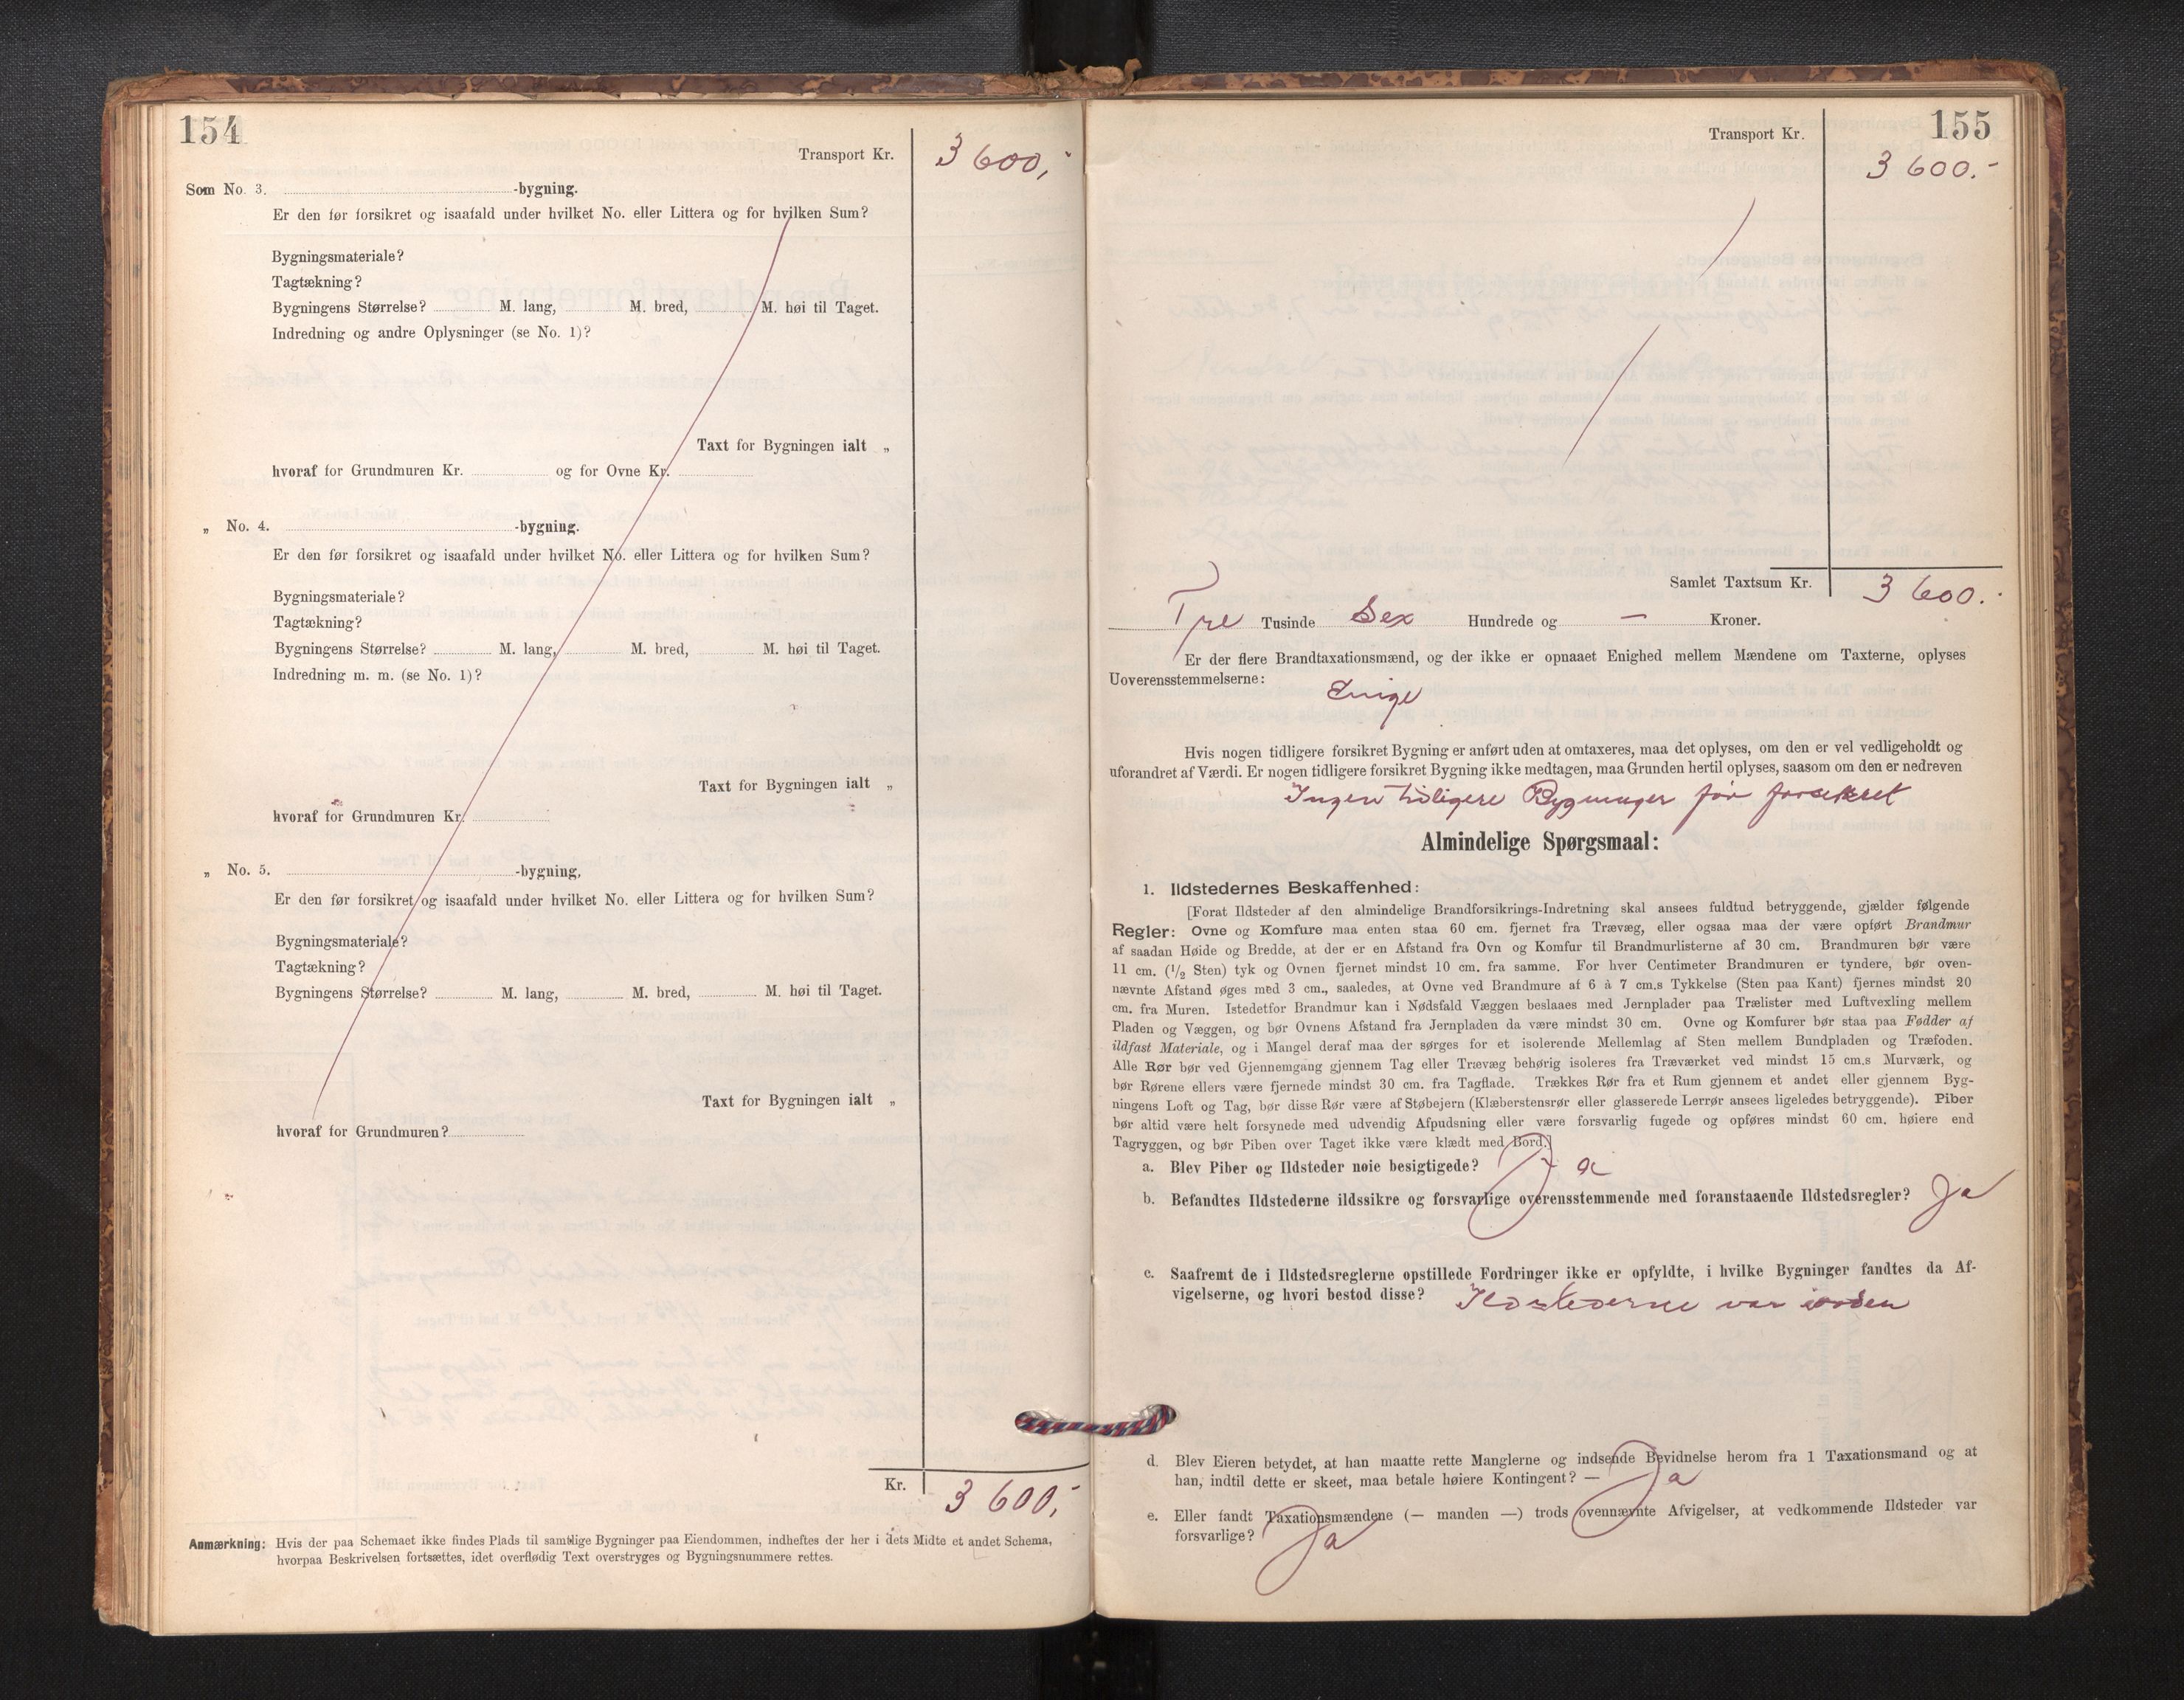 154
Transport Kr. 3 600,-
Som No. 3. -bygning.
Er den før forsikret og isaafald under hvilket No. eller Littera og for hvilken Sum?
Bygningsmateriale?
Tagtækning?
Bygningens Størrelse? M. lang, M. bred, M. høi til Taget.
Indredning og andre Oplysninger (se No. 1)?
Taxt for Bygningen ialt „
hvoraf for Grundmuren Kr. og for Ovne Kr.
„ No. 4. -bygning.
Er den før forsikret og isaafald under hvilket No. eller Littera og for hvilken Sum?
Bygningsmateriale?
Tagtækning?
Bygningens Størrelse? M. lang, M. bred, M. høi til Taget.
Indredning m. m. (se No. 1)?
Taxt for Bygningen ialt „
hvoraf for Grundmuren Kr.
„ No. 5. -bygning.
Er den før forsikret og isaafald under hvilket No. eller Littera og for hvilken Sum?
Bygningsmateriale?
Tagtækning?
Bygningens Størrelse? M. lang, M. bred, M. høi til Taget.
Taxt for Bygningen ialt „
hvoraf for Grundmuren?
Kr. 3 600,-
Anmærkning: Hvis der paa Schemaet ikke findes Plads til samtlige Bygninger paa Eiendommen, indheftes der her i dets Midte et andet Schema,
hvorpaa Beskrivelsen fortsættes, idet overflødig Text overstryges og Bygningsnummere rettes.
155
Transport Kr.
3 600.-
Samlet Taxtsum Kr. 3 600.-
Tre Tusinde Sex Hundrede og — Kroner.
Er der flere Brandtaxationsmænd, og der ikke er opnaaet Enighed mellem Mændene om Taxterne, oplyses
Uoverensstemmelserne:
Enige
Hvis nogen tidligere forsikret Bygning er anført uden at omtaxeres, maa det oplyses, om den er vel vedligeholdt og
uforandret af Værdi. Er nogen tidligere forsikret Bygning ikke medtagen, maa Grunden hertil oplyses, saasom om den er nedreven
Ingen tidligere Bygninger før forsikret
Almindelige Spørgsmaal:
1. Ildstedernes Beskaffenhed:
[Forat Ildsteder af den almindelige Brandforsikrings-Indretning skal ansees fuldtud betryggende, gjælder følgende
Regler: Ovne og Komfure maa enten staa 60 cm. fjernet fra Trævæg, eller ogsaa maa der være opført Brandmur
af saadan Høide og Bredde, at der er en Afstand fra Ovn og Komfur til Brandmurlisterne af 30 cm. Brandmuren bør være
11 cm. (1/2 Sten) tyk og Ovnen fjernet mindst 10 cm. fra samme. For hver Centimeter Brandmuren er tyndere, bør oven-
nævnte Afstand øges med 3 cm., saaledes, at Ovne ved Brandmure af 6 à 7 cm.s Tykkelse (Sten paa Kant) fjernes mindst 20
cm. fra Muren. Istedetfor Brandmur kan i Nødsfald Væggen beslaaes med Jernplader paa Trælister med Luftvexling mellem
Pladen og Væggen, og bør Ovnens Afstand fra Jernpladen da være mindst 30 cm. Ovne og Komfurer bør staa paa Fødder af
ildfast Materiale, og i Mangel deraf maa der sørges for et isolerende Mellemlag af Sten mellem Bundpladen og Træfoden.
Alle Rør bør ved Gjennemgang gjennem Tag eller Trævæg behørig isoleres fra Træværket ved mindst 15 cm.s Murværk, og
bør Rørene ellers være fjernede mindst 30 cm. fra Tagflade. Trækkes Rør fra et Rum gjennem et andet eller gjennem Byg-
ningens Loft og Tag, bør disse Rør være af Støbejern (Klæberstensrør eller glasserede Lerrør ansees ligeledes betryggende). Piber
bør altid være helt forsynede med udvendig Afpudsning eller være forsvarlig fugede og opføres mindst 60 cm. høiere end
Tagryggen, og bør Piben over Taget ikke være klædt med Bord.]
a. Blev Piber og Ildsteder nøie besigtigede? Ja
b. Befandtes Ildstederne ildssikre og forsvarlige overensstemmende med foranstaaende Ildstedsregler? Ja
c. Saafremt de i Ildstedsreglerne opstillede Fordringer ikke er opfyldte, i hvilke Bygninger fandtes da Af-
vigelserne, og hvori bestod disse? Ildstederne var i orden
d. Blev Eieren betydet, at han maatte rette Manglerne og indsende Bevidnelse herom fra 1 Taxationsmand og at
han, indtil dette er skeet, maa betale høiere Kontingent? — Ja
e. Eller fandt Taxationsmændene (— manden —) trods ovennævnte Afvigelser, at vedkommende Ildsteder var
forsvarlige? Ja